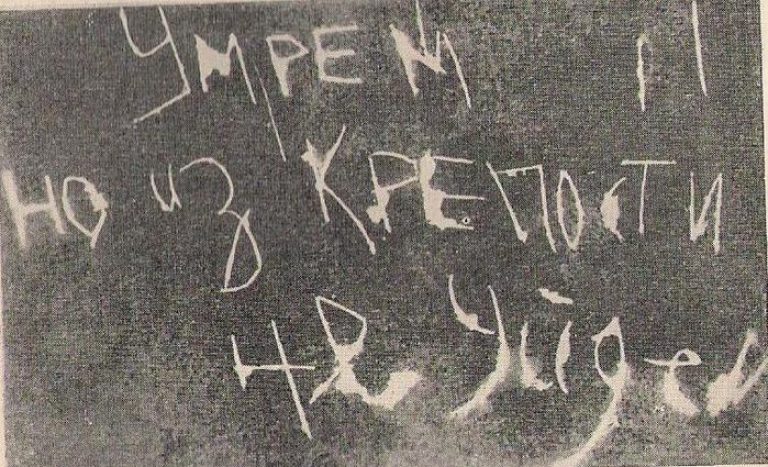 УМРЕМ
НО из КРЕПОСТИ
не Уйдем